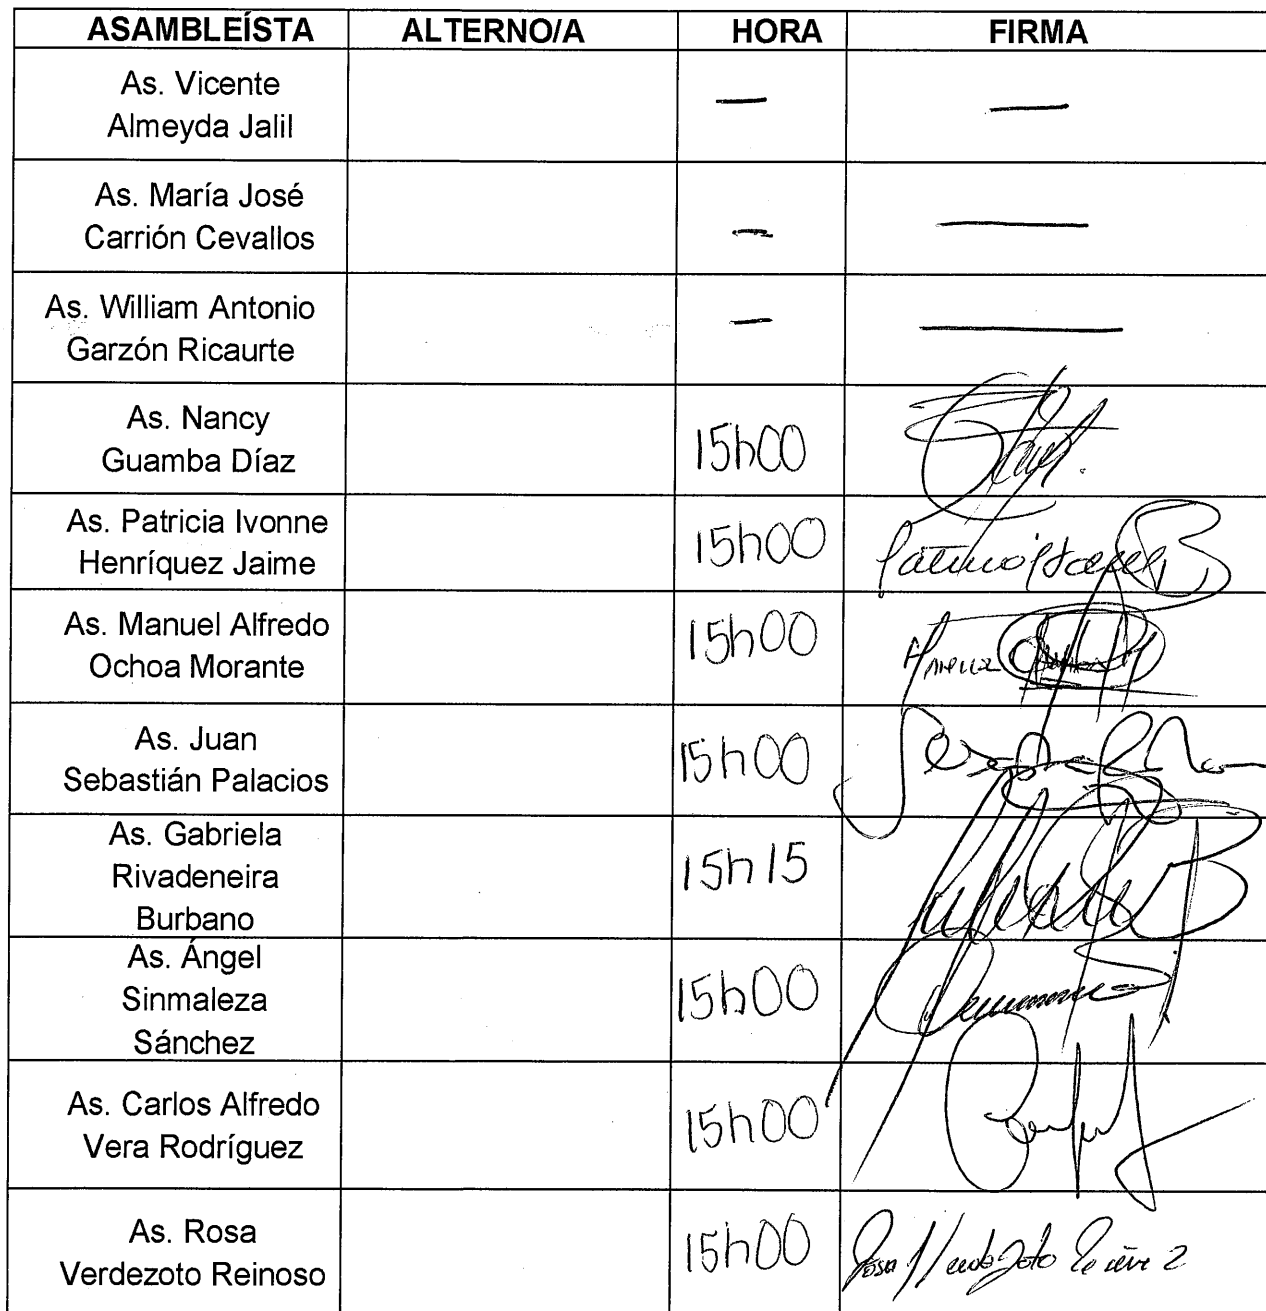 ASAMBLEÍSTA ALTERNO/A HORA FIRMA
As. Vicente
Almeyda Jalil — —
As. María José
Carrión Cevallos — —
As. William Antonio
Garzón Ricaurte — —
As. Nancy
Guamba Díaz 15h00
As. Patricia Ivonne
Henríquez Jaime 15h00
As. Manuel Alfredo
Ochoa Morante 15h00
As. Juan
Sebastián Palacios 15h00
As. Gabriela
Rivadeneira
Burbano 15h15
As. Ángel
Sinmaleza
Sánchez 15h00
As. Carlos Alfredo
Vera Rodríguez 15h00
As. Rosa
Verdezoto Reinoso 15h00